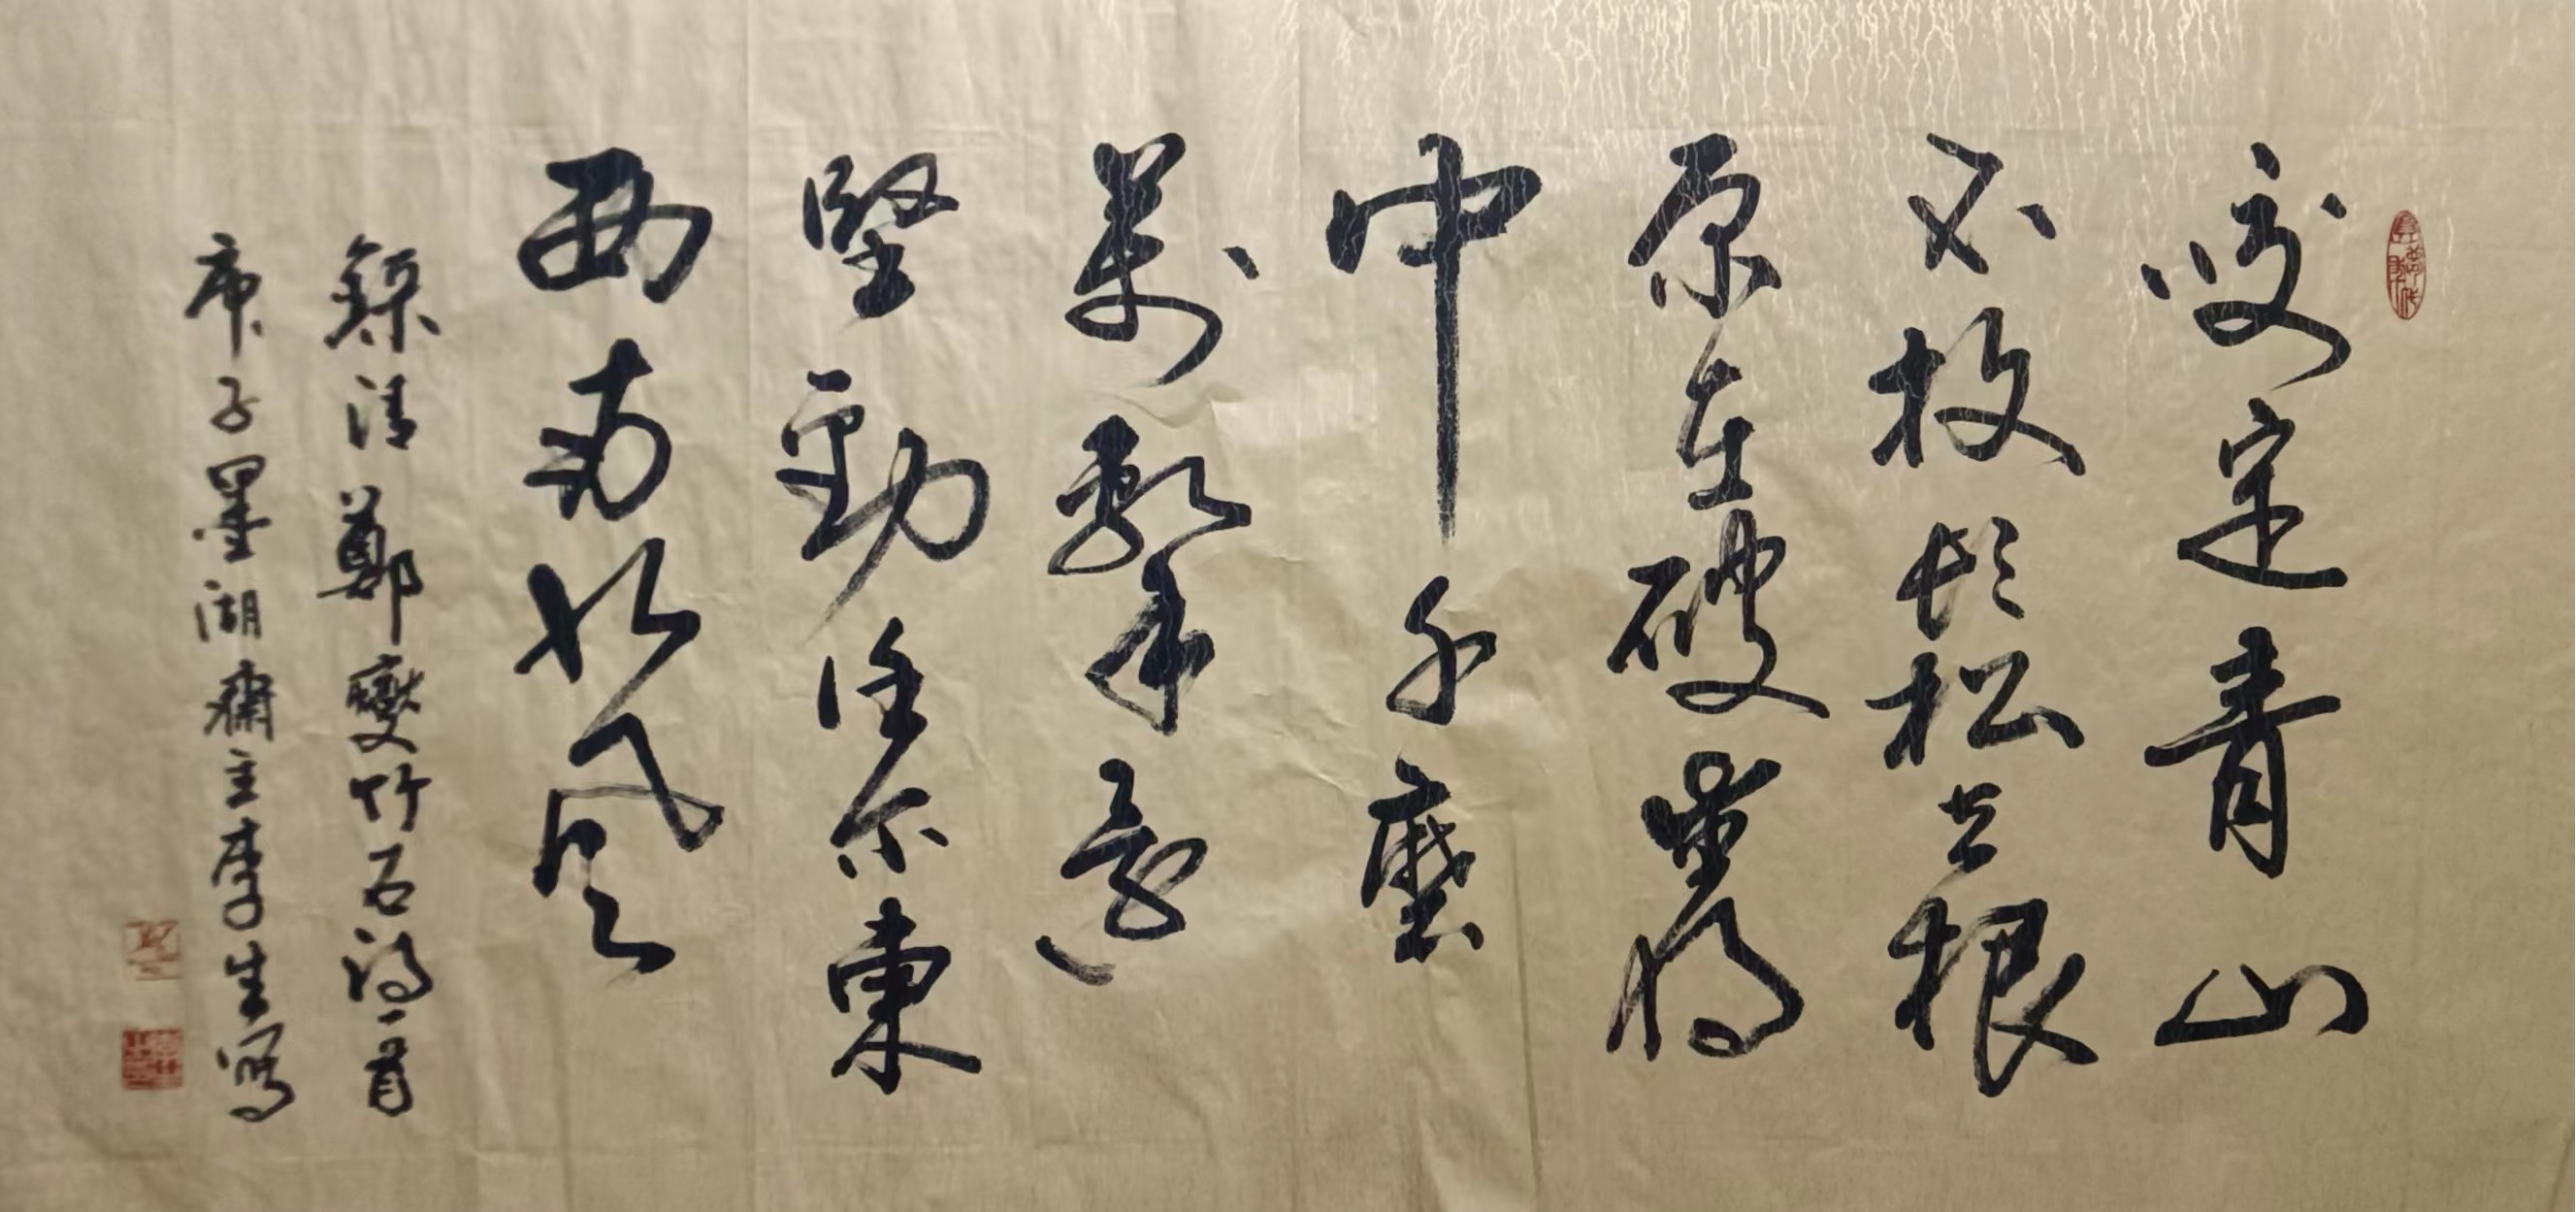 咬定青山
不放鬆立根
原在破巖
中千磨
萬擊還
堅勁任尔東
西南北风
錄清鄭燮竹石詩一首
庚子墨湖齋主李生寫